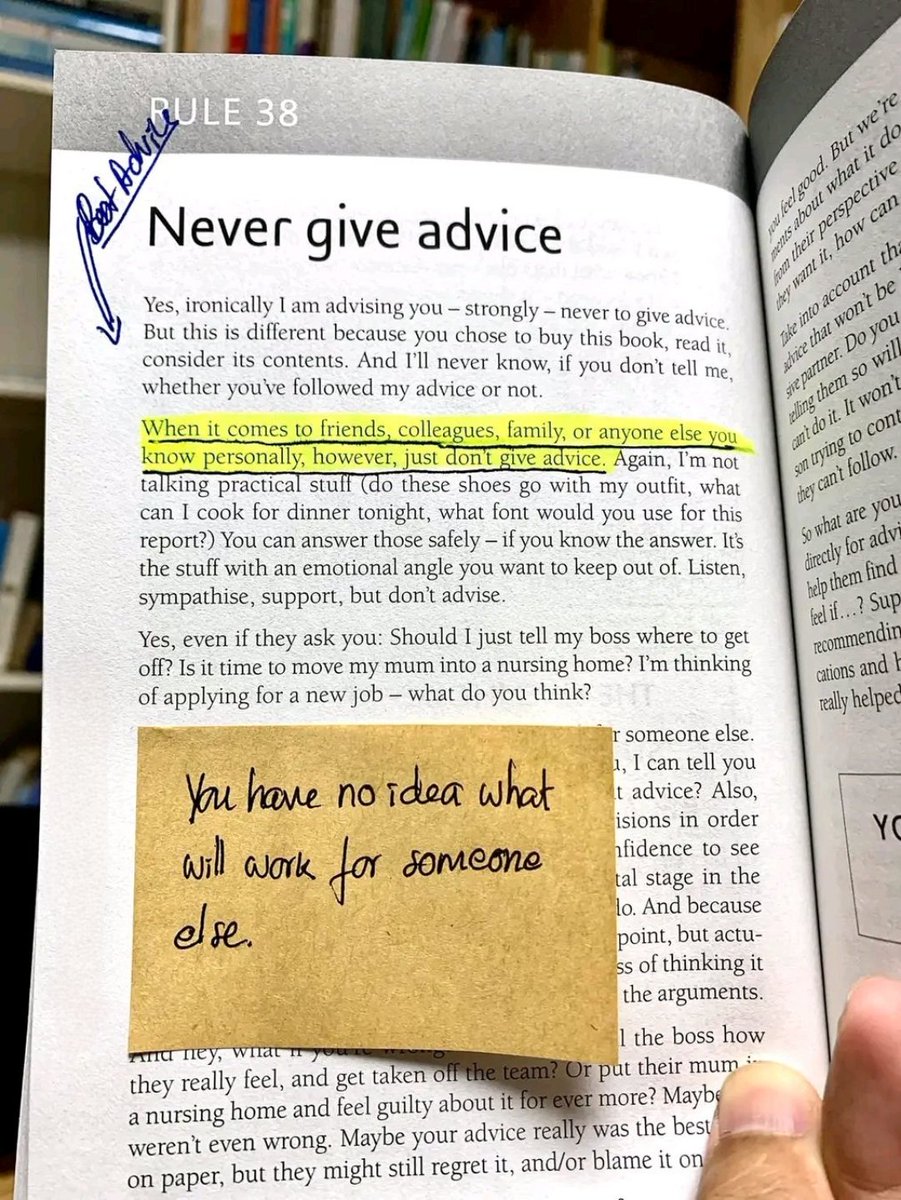 RULE 38
Best Advice
Never give advice
Yes, ironically I am advising you – strongly – never to give advice.
But this is different because you chose to buy this book, read it,
consider its contents. And I'll never know, if you don't tell me,
whether you've followed my advice or not.
When it comes to friends, colleagues, family, or anyone else you
know personally, however, just don't give advice. Again, I'm not
talking practical stuff (do these shoes go with my outfit, what
can I cook for dinner tonight, what font would you use for this
report?) You can answer those safely – if you know the answer. It's
the stuff with an emotional angle you want to keep out of. Listen,
sympathise, support, but don't advise.
Yes, even if they ask you: Should I just tell my boss where to get
off? Is it time to move my mum into a nursing home? I'm thinking
of applying for a new job – what do you think?
someone else.
I can tell you
advice? Also,
in order
to see
stage in the
And because
point, but actu-
of thinking it
the arguments.
You have no idea what
will work for someone
else.
the boss how
they really feel, and get taken off the team? Or put their mum
a nursing home and feel guilty about it for ever more? Maybe
weren't even wrong. Maybe your advice really was the best
on paper, but they might still regret it, and/or blame it on
you feel good. But we're
about what it
from their perspective
they want it, how can
Take into account
advice that won't be
partner. Do you
telling them so will
can't do it. It won't
trying to
they can't follow.
So what are you
directly for
help them find
feel if…?
recommending
and
really helped